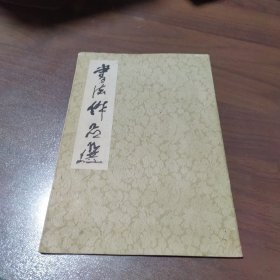 書法作品選